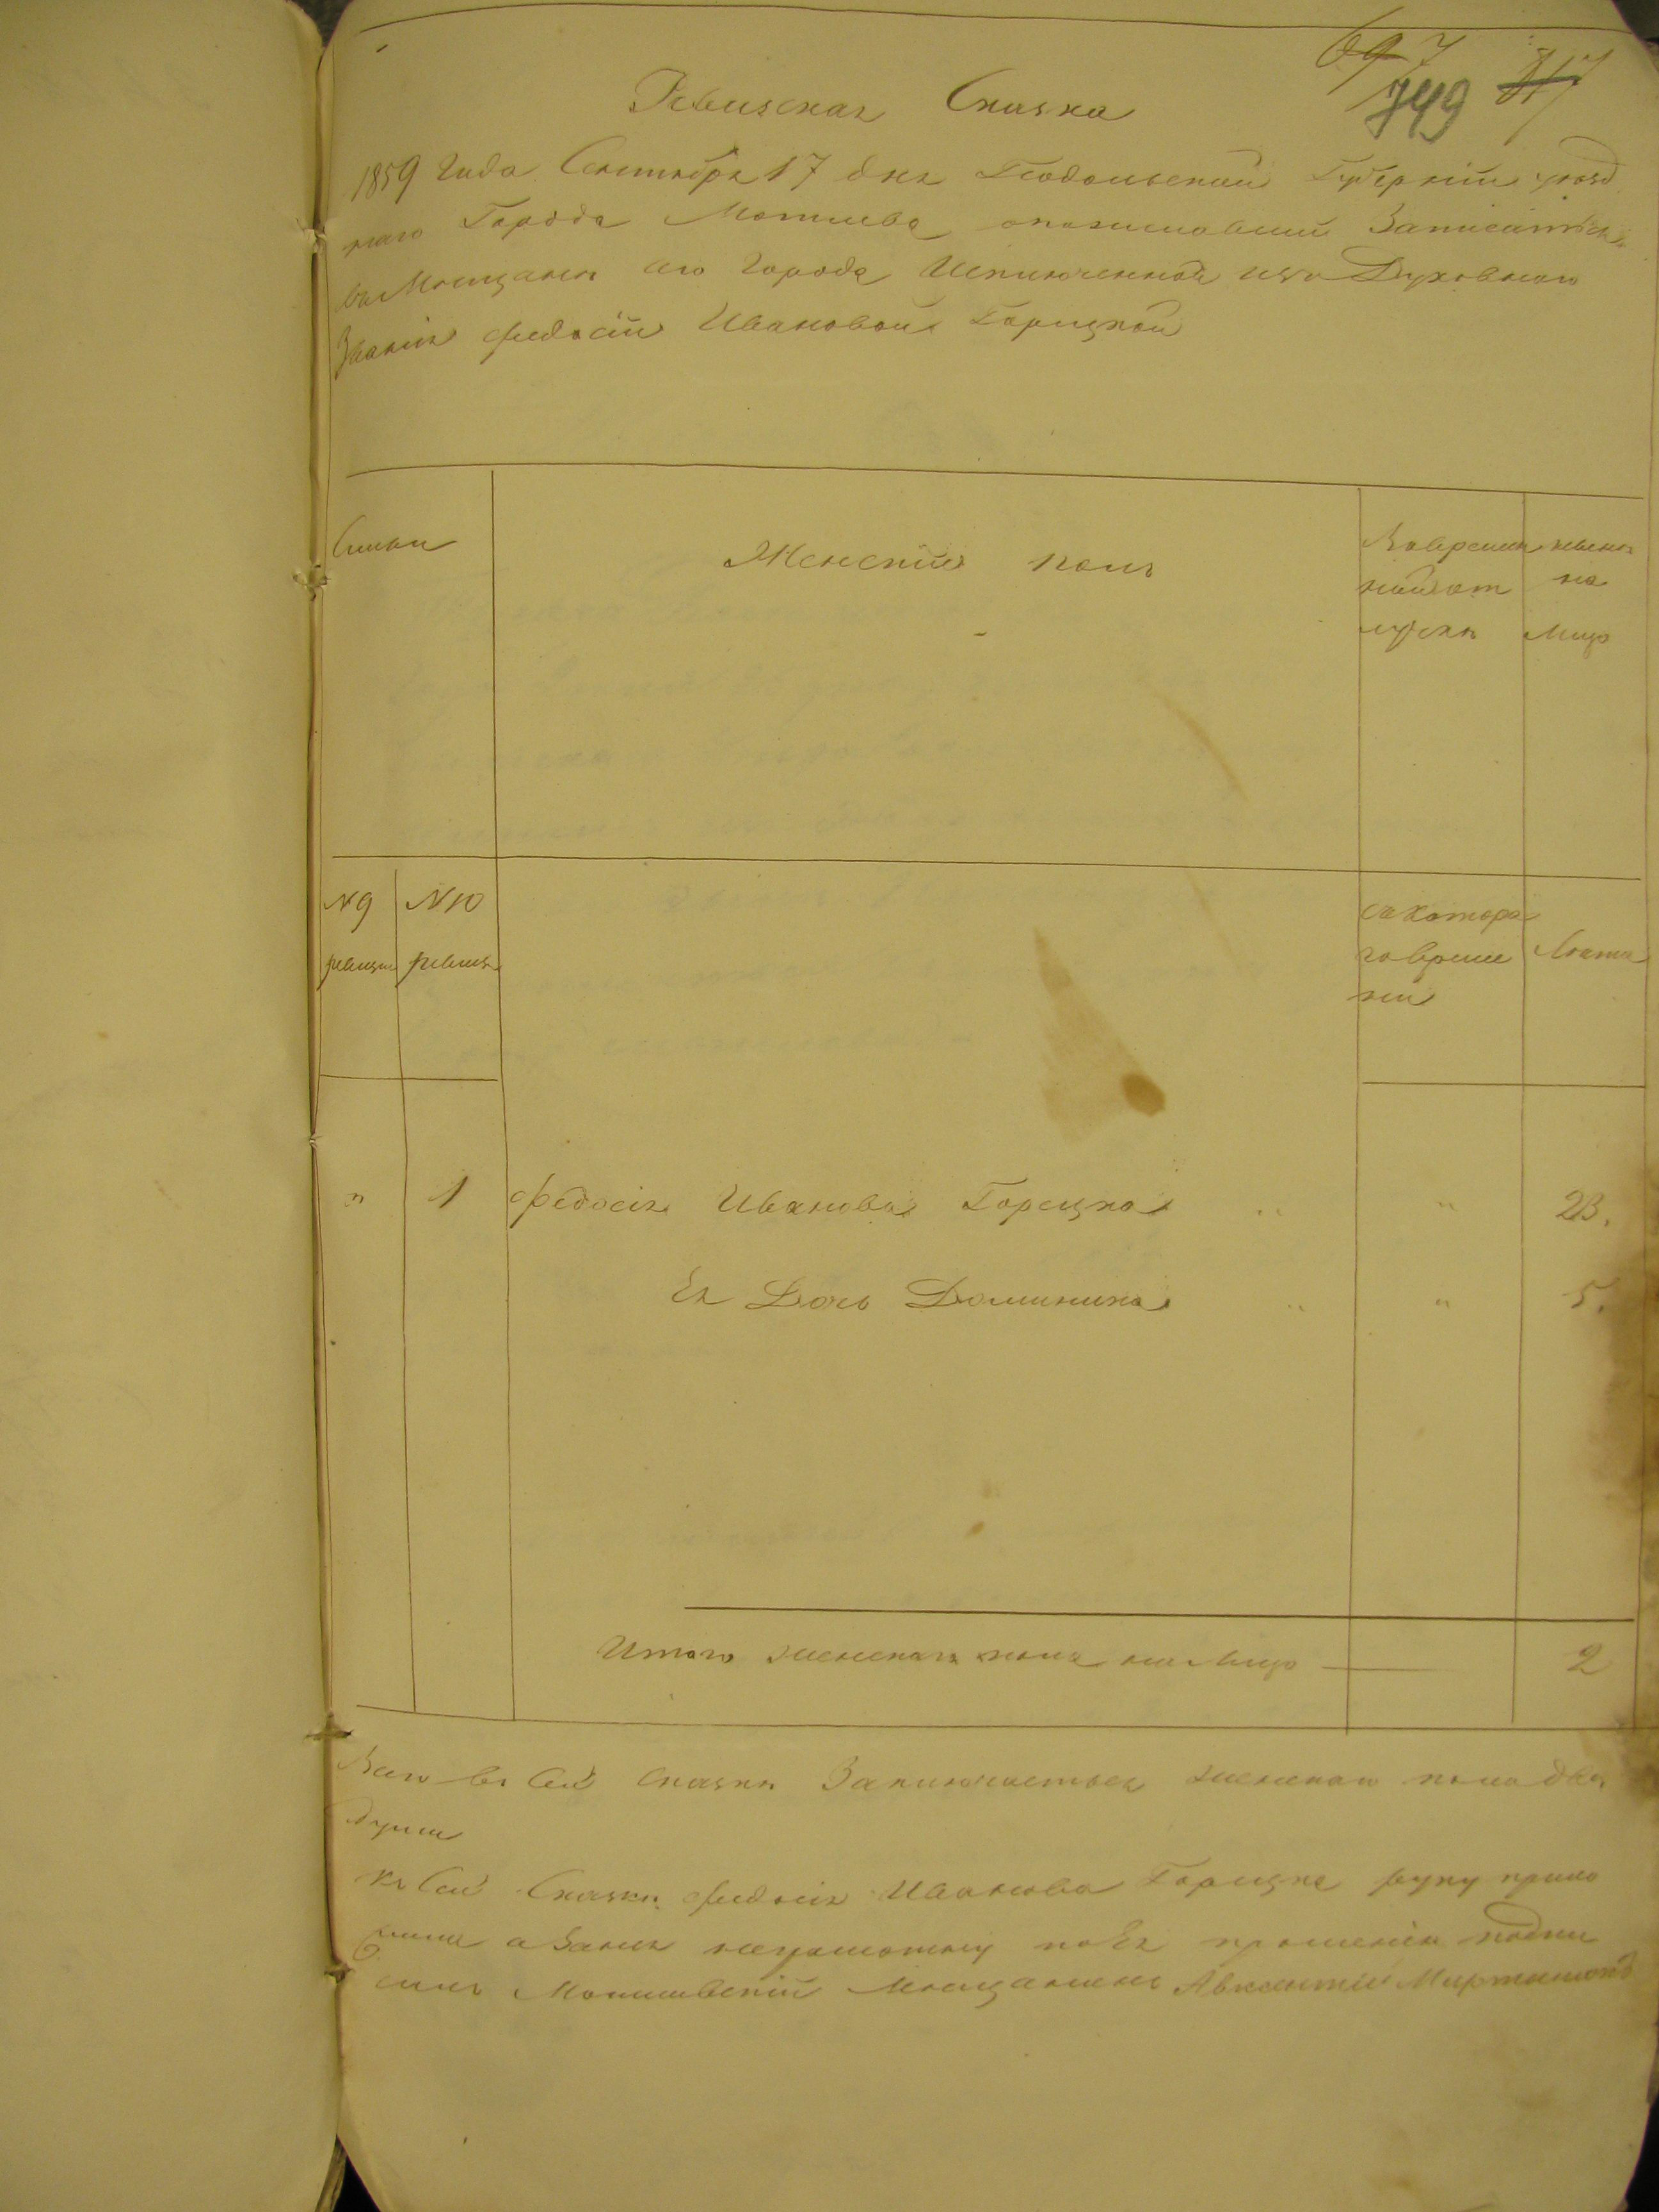 697 749 817
Ревизская Сказка
1859 Года Сентября 17 дня Подольской Губерніи уезд
наго Города Могилева о пожелавшей Записатся
въ Мещане сего Города Исключенной изъ Духовнаго
Званія Федосіи Ивановой Горецкой
Семьи
Женскій полъ
Вовремен
ной от
лучкѣ
ныне
на
лицо
N 9
ревизіи
N 10
ревизіи
съ Котора
го време
ни
Лѣта
" 1 Федосія Ивановна Горецка " 23.
Ея Дочь Доминика " 5.
Итого женскаго пола на Лицо 2
Всего въ Сей Сказкѣ Заключается женскаго пола две
души
Къ Сей Сказкѣ Федосія Иванова Горецка руку прило
жила а Занея неграмотну по Ея прошенію подпи
салъ Могилевскій Мещанинъ Авксентій